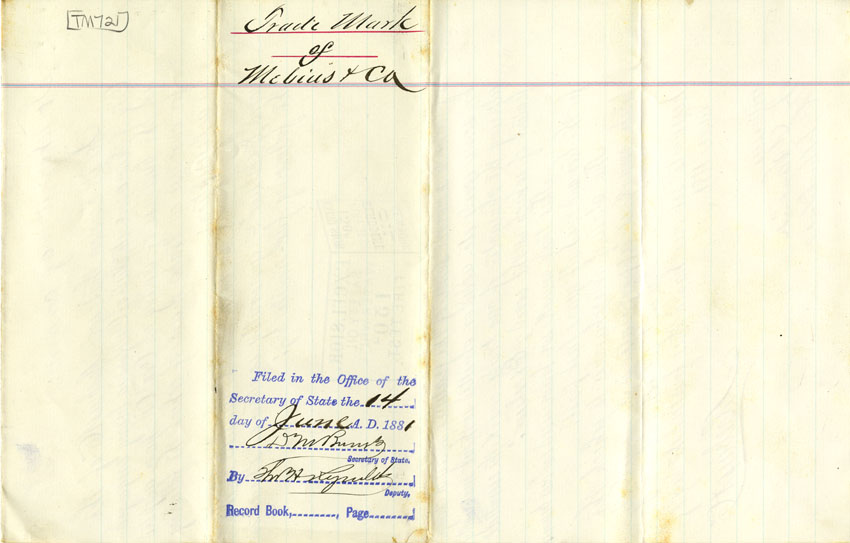 [TM721]
Trade Mark
of
Mebius & Co
Filed in the Office of the
Secretary of State the 14
day of June A. D. 1881
D M Burns
Secretary of State.
By Thos H Reynolds
Deputy.
Record Book, Page